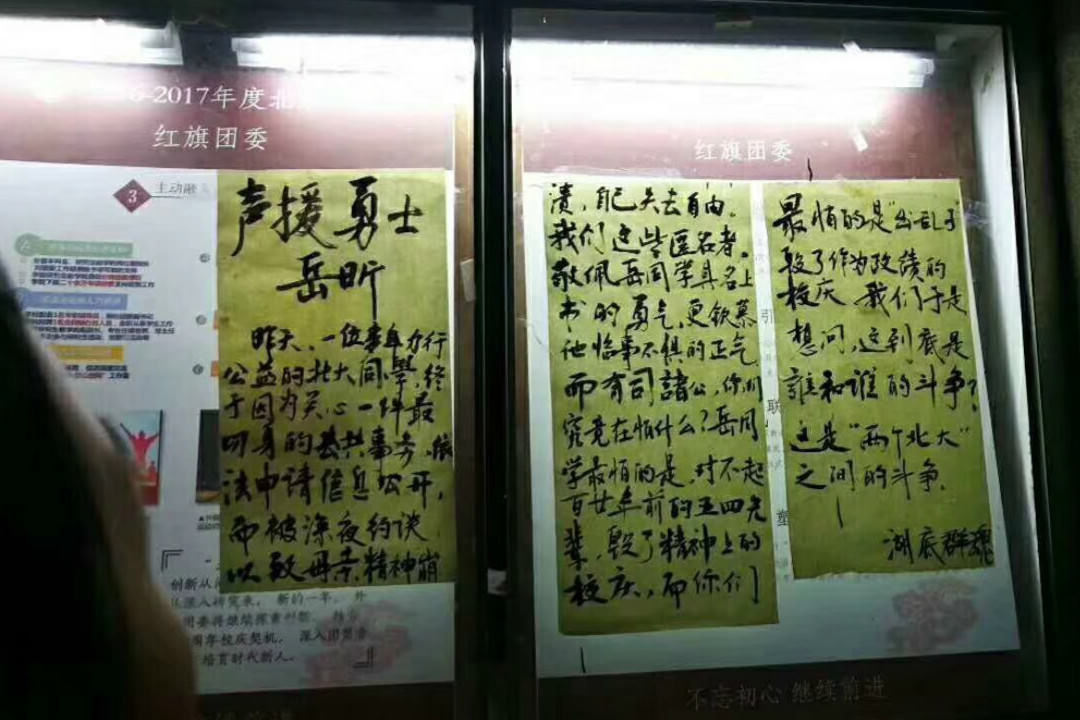 -2017年度北
红旗团委
3
主动融
声援勇士
岳昕
昨天，一位秉身力行
公益的北大同學，终
于因为关心一件最
切身的公共事务，依
法申请信息公开，
而被深夜约谈
以致母亲精神崩
创新从
从深入研究来，新的一年，
团委将继续探索
周年校庆契机，深入团
培育时代新人。
红旗团委
溃，自己失去自由。
我们这些匿名者，
敬佩岳同学具名上
书的勇气，更钦慕
他临事不惧的正气
而有司諸公，你们
究竟在怕什么？岳同
学最怕的是，对不起
百廿年前的五四先
辈，毁了精神上的
校庆，而你们
引
联
塑
最怕的是“出乱子”
毁了作为政绩的
校庆 我们于是
想问，这到底是
誰和谁的斗争？
这是“两个北大”
之间的斗争。
湖底群魂
不忘初心 继续前进